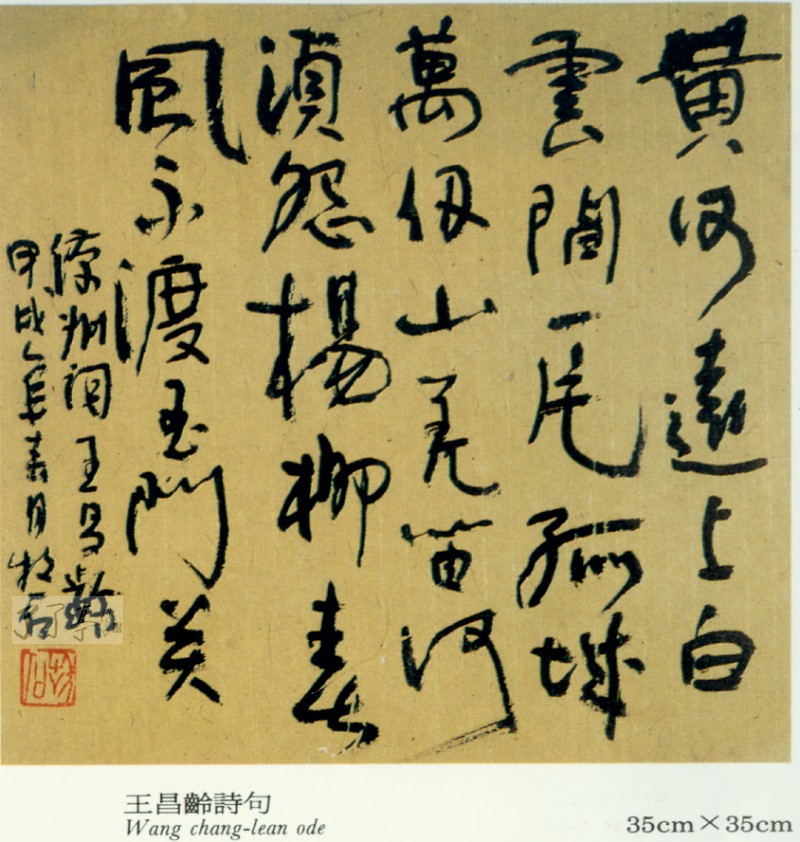 黄河遠上白
雲間一片孤城
萬仞山羌笛何
湏怨楊柳春
風不渡玉門关
凉州詞王昌齡
甲戌年春月牧石
王昌齡詩句
Wang chang-lean ode
35cm×35cm